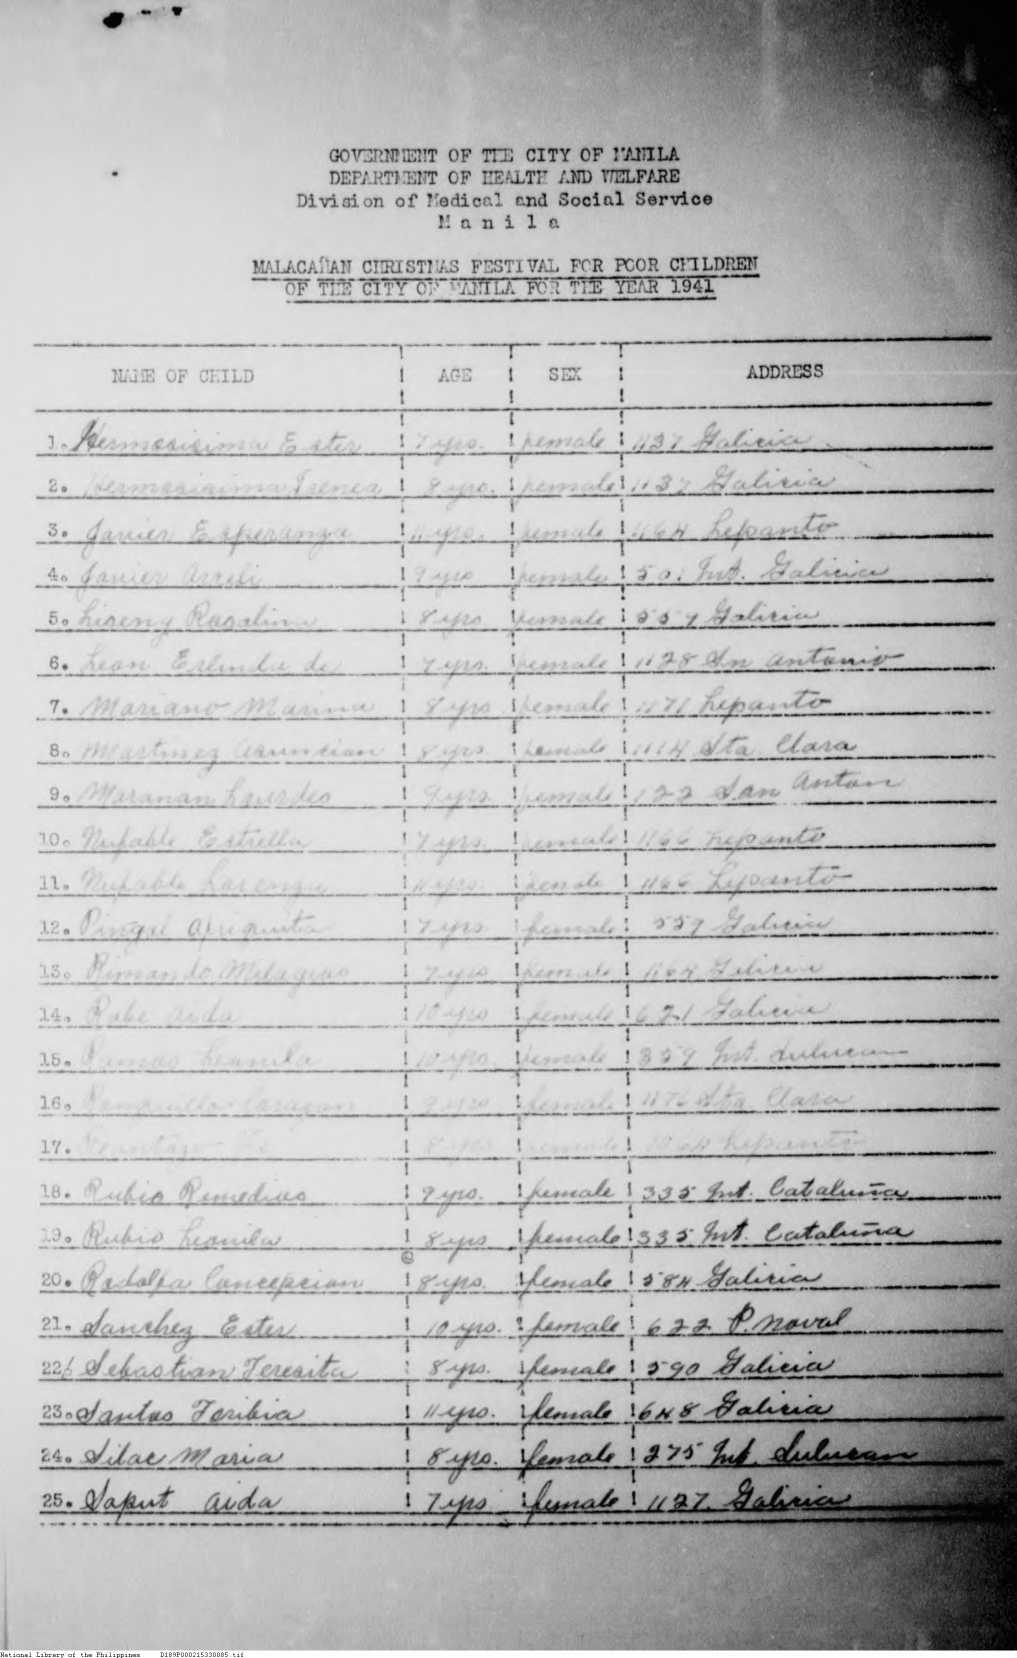 GOVERNMENT OF THE CITY OF MANILA
DEPARTMENT OF HEALTH AND WELFARE
Division of Medical and Social Service
M a n i l a
MALACAÑAN CHRISTMAS FESTIVAL FOR POOR CHILDREN
OF THE CITY OF MANILA FOR THE YEAR 1941
NAME OF CHILD AGE SEX ADDRESS
1. Hermosisima Ester 7 yrs. female 1137 Galicia
2. Hermosisima Irenea 8 yrs. female 1137 Galicia
3. Javier Esperanza 11 yrs. female 1164 Lepanto
4. Javier 9 yrs female 501 Int. Galicia
5. Rosalina 8 yrs female 559 Galicia
6. Leon Erlinda de 7 yrs. female 1128 Sn Antonio
7. Mariano Marina 8 yrs female 1171 Lepanto
8. Martinez Asuncion 8 yrs. female 1114 Sta. Clara
9. Maranan Lourdes 9 yrs. female 122 San Anton
10. Nufable Estrella 7 yrs. female 1166 Lepanto
11. Nufable Lorenza 11 yrs. female 1166 Lepanto
12. Pingol 7 yrs female 559 Galicia
13. Rimando Milagros 7 yrs female 1164 Galicia
14. Robe Aida 10 yrs female 621 Galicia
15. Ramos Leonila 10 yrs. female 359 Int. Sulucan
16. Ronquillo Corazon 9 yrs female 1176 Sta. Clara
17. 8 yrs female Lepanto
18. Rubio Remedios 9 yrs. female 335 Int. Cataluña
19. Rubio Leonila 8 yrs female 335 Int. Cataluña
20. Rodolfa Concepcion 8 yrs. female 584 Galicia
21. Sanchez Ester 10 yrs. female 622 P. Noval
22. Sebastian Teresita 8 yrs. female 590 Galicia
23. Santos Toribia 11 yrs. female 648 Galicia
24. Silac Maria 8 yrs. female 275 Int. Sulucan
25. Saput Aida 7 yrs female 1127 Galicia
National Library of the Philippines D189P000215330085.tif